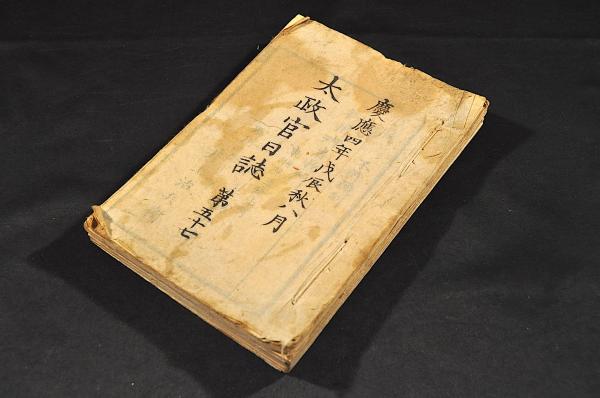 慶應四年戊辰秋八月
太政官日誌 第五十七